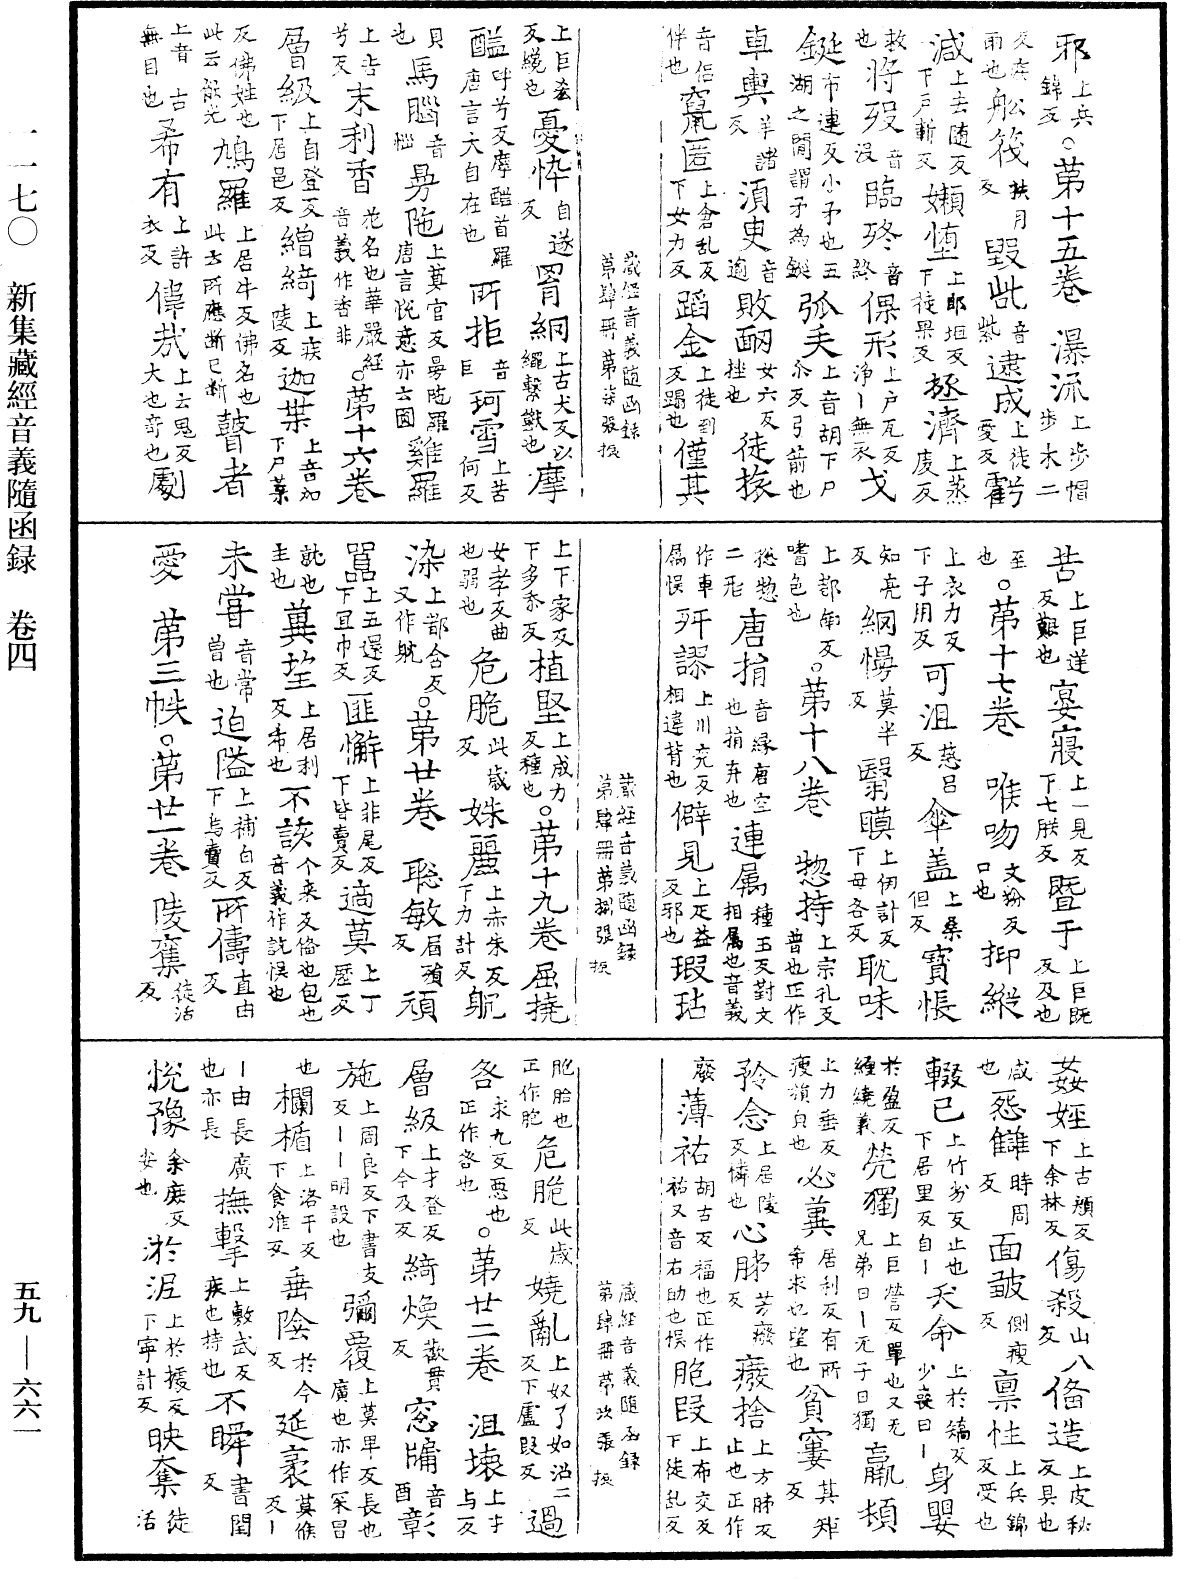 一一七〇 新集藏經音義隨函錄 卷四
五九—六六一
邪上兵錦反。第十五卷 瀑流上步帽
反疾雨也舩筏扶月反毀呰音紫逮成上徒愛反
減上去隨反下戶斬反嬾墮上郎坦反下徒果反拯濟上蒸
救也將歿音沒臨終音終倮形上戶瓦反淨丨無衣戈
鋋市連反小矛也五湖之間謂矛為鋋弧矢上音胡下尸尒反弓箭也
車輿羊諸反須臾音逾敗衂女六反挫也徒旅
音侣伴也竄匿上倉乱反下女力反蹈金上徒到反蹋也僅其
藏經音義隨函錄 第肆冊 第柒張 振
憂悴自遂反罥網上古犬反以繩繫獸也摩
醯呼兮反摩醯首羅唐言大自在也所拒音巨珂雪上苦何反
馬腦音惱曼陁上莫官反曼陁羅唐言悅意亦云圓雞羅
末利香花名也華嚴經音義作香非。第十六卷
層級上自登反下居邑反繒綺上疾陵反迦葉上音加下尸葉
反佛姓也此云飲光鳩羅上居牛反佛名也此云所應断已断瞽者
上音古無目也希有上許衣反偉哉上云鬼反大也奇也劇
宴寢上一見反下七朕反暨于上巨既反及也
至也。第十七卷 喉吻文粉反口也抑縱
上衣力反下子用反可沮慈吕反傘盖上桑但反寶悵
知亮反網幔莫半反翳瞙上伊計反下母各反耽味
上都南反嗜色也。第十八卷 惣持上宗孔反普也正作
揔惣二形唐捐音緣唐空也捐弃也連属種玉反對文相属也音義
作車属悮舛謬上川兖反相違背也僻見上疋益反邪也瑕玷
藏經音義隨函錄 第肆冊 第捌張 振
上下家反下多忝反植堅上成力反種也。第十九卷 屈撓
女孝反曲也弱也危脆此歲反姝麗上赤朱反下力計反躭
染上都含反又作躭。第廿卷 聡敏眉殞反頑
嚚上五還反下宜巾反匪懈上非尾反下皆賣反適莫上丁歷反
主也冀望上居利反希也不該个來反俻也包也音義作訑悮也
未甞音常曾也迫隘上補白反下烏賣反所儔直由反
愛 第三帙。第廿一卷 陵奪徒活反
姦婬上古顏反下余林反傷殺山八反俻造上皮秘反具也
怨讎時周反面皺側瘦反稟性上兵錦反受也
輟已上竹劣反止也下居里反自丨夭命上於矯反少喪曰丨身嬰
於盈反纏繞義煢獨上巨營反單也又无兄弟曰丨无子曰獨羸𩔖
上力垂反瘦㾪皃也必冀居利反有所希求也望也貧窶其矩反
矜念上居陵反憐也心肺芳癈反癈捨上方肺反止也正作
廢薄祐胡古反福也正作祜又音右助也悮胞段上布交反下徒乱反
藏經音義隨函錄 第肆冊 第玖張 振
胞胎也正作胞危脆此歲反嬈亂上奴了如沼二反下盧段反過
咎求九反惡也正作咎也。第廿二卷 沮壞上才与反
層級上才登反下今及反綺煥歡貫反窓牖音酉彰
施上周良反下書支反丨丨明設也彌覆上莫卑反長也廣也亦作罙冒
也欄楯上洛干反下食准反垂陰於今反延袤莫候反丨
丨由長廣也亦長撫擊上敷武反疾也持也不瞬書閏反
悅豫余庶反安也淤泥上於據反下寧計反映奪徒活